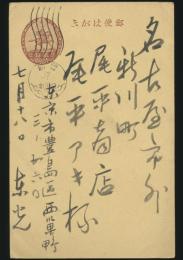 郵便はがき
名古屋市外
新川町
尾平商店
尾平アキ様
東京市豊島区西巣鴨町
七月十八日